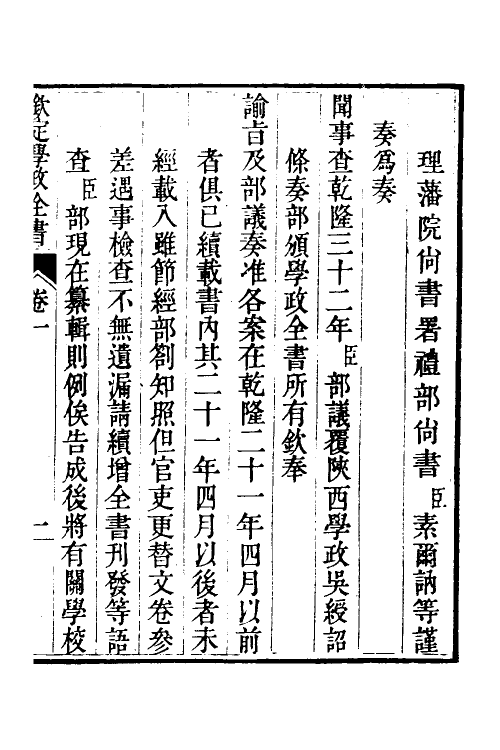 理藩院尙書署禮部尙書臣素爾訥等謹
奏爲奏
聞事查乾隆三十二年臣部議覆陜西學政吳綬詔
條奏部頒學政全書所有欽奉
諭旨及部議奏准各案在乾隆二十一年四月以前
者俱已續載書內其二十一年四月以後者未
經載入雖節經部劄知照但官吏更替文卷參
差遇事檢查不無遺漏請續增全書刊發等語
查臣部現在纂輯則例俟告成後將有關學校
欽定學政全書 卷一 一